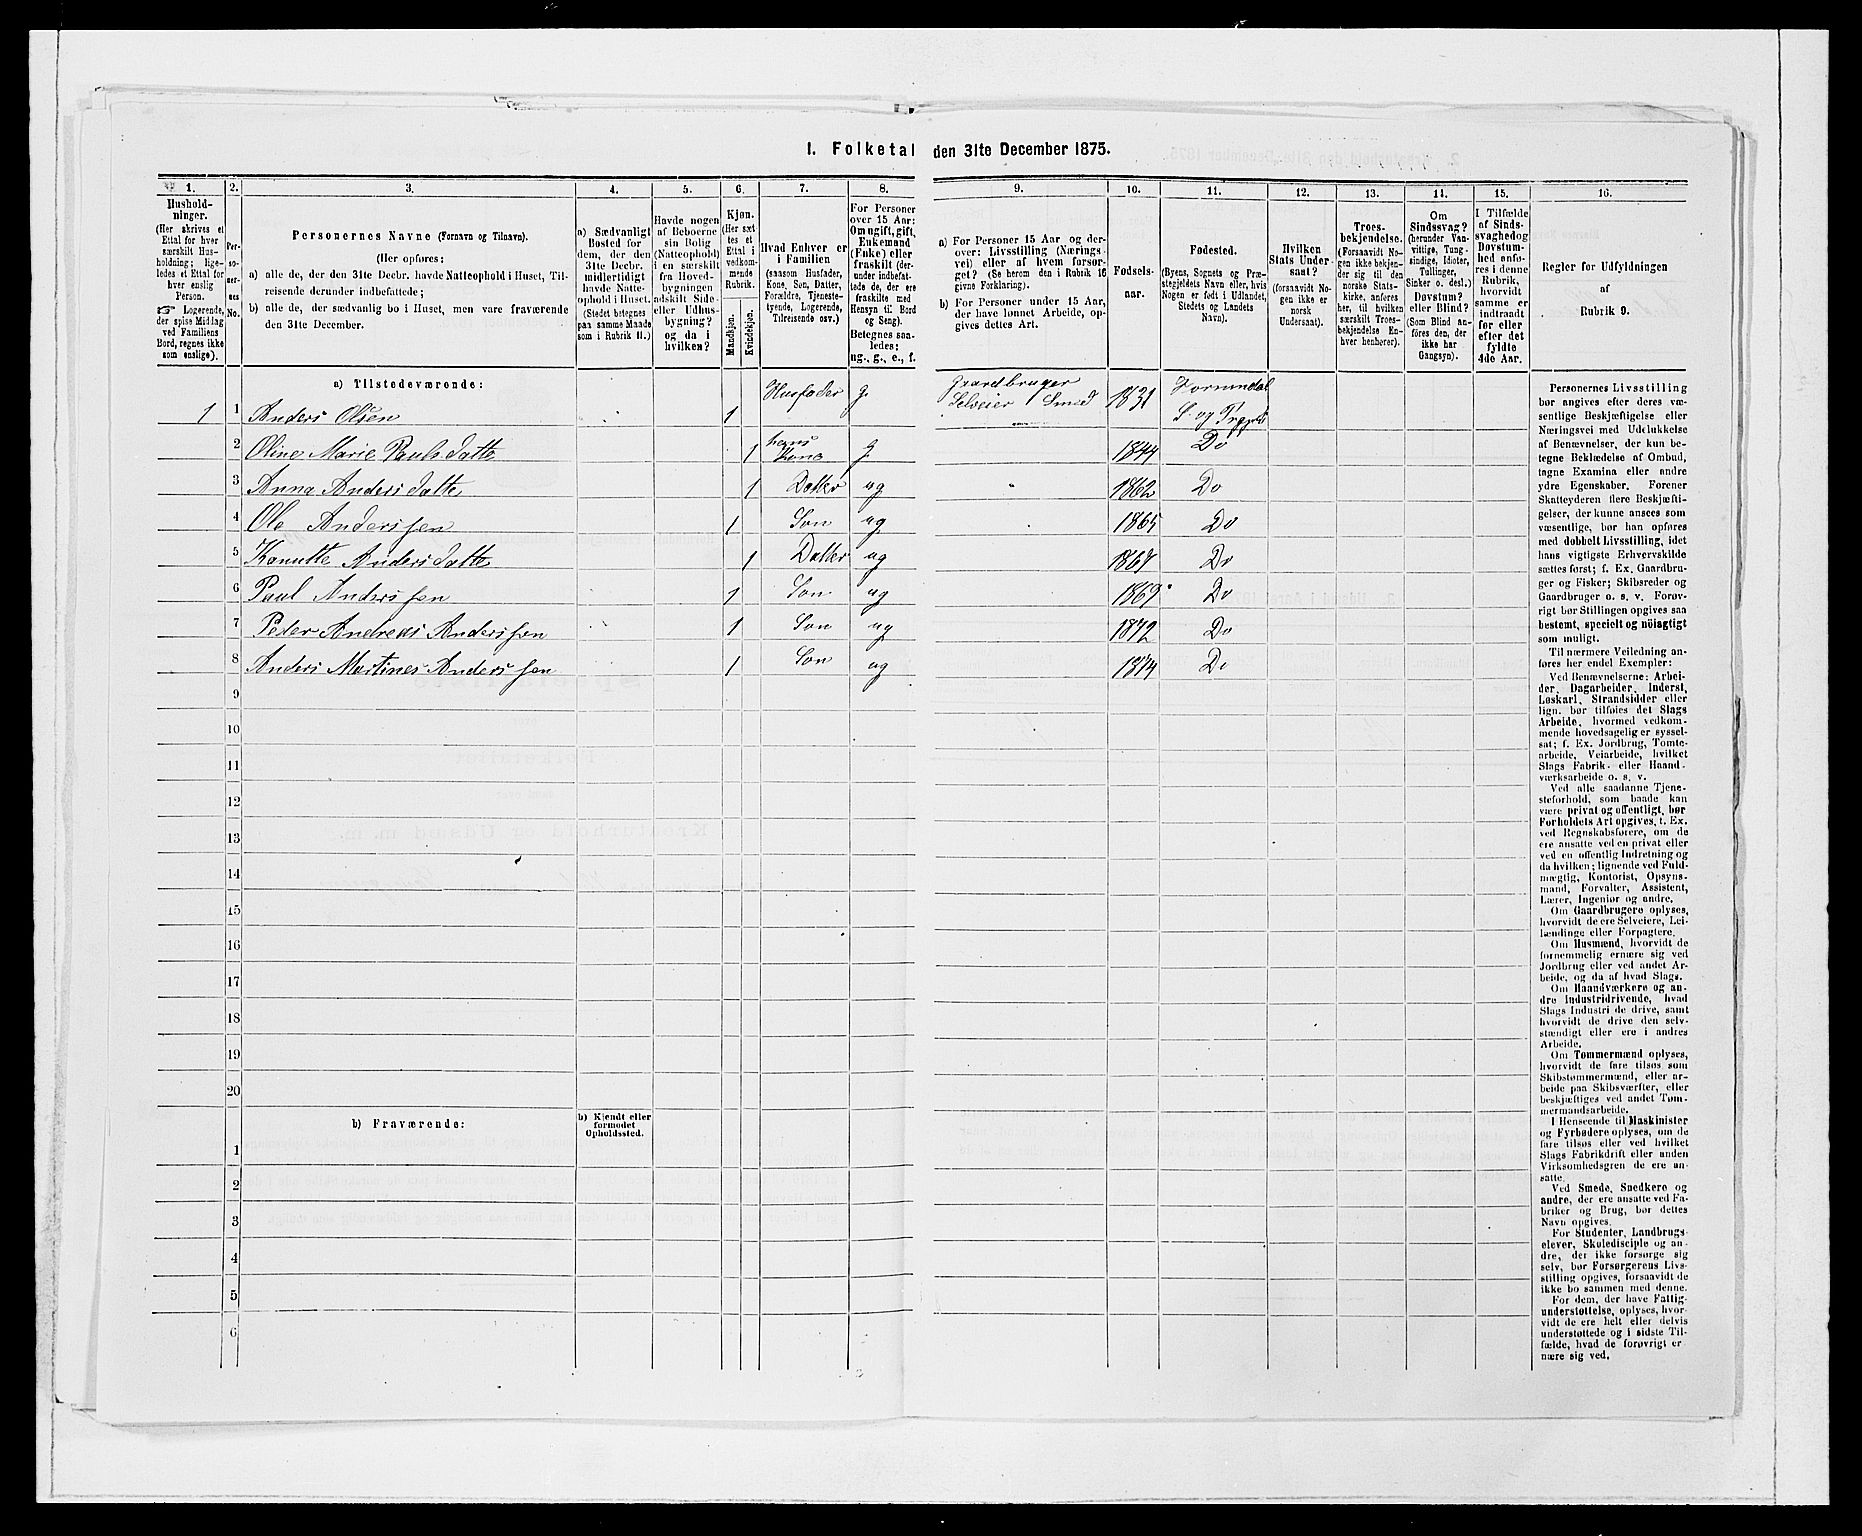 I. Folketal den 31te December 1875.
1. 2. 3. 4. 5. 6. 7. 8. 9. 10. 11. 12. 13. 14. 15. 16.
Hushold-
ninger.
(Her skrives et
Ettal for hver
særskilt Hus-
holdning; lige-
ledes et Ettal for
hver enslig
Person.
☞ Logerende,
der spise Middag
ved Familiens
Bord, regnes ikke
som enslige).
Per-
so-
ner-
nes
No.
Personernes Navne (Fornavn og Tilnavn).
(Her opføres:
a) alle de, der den 31te Decbr. havde Natteophold i Huset, Til-
reisende derunder indbefattede;
b) alle de, der sædvanlig bo i Huset, men vare fraværende
den 31te December.
a) Sædvanligt
Bosted for
dem, der den
31te Decbr.
midlertidigt
havde Natte-
ophold i Huset.
(Stedet betegnes
paa samme Maade
som i Rubrik 11.)
Havde nogen
af Beboerne
sin Bolig
(Natteophold)
i en særskilt
fra Hoved-
bygningen
adskilt Side-
eller Udhus-
bygning?
og da i
hvilken?
Kjøn.
(Her sæt-
tes et
Ettal i
vedkom-
mende
Rubrik.
Mandkjøn.
Kvindekjøn.
Hvad Enhver er
i Familien
(saasom Husfader,
Kone, Søn, Datter,
Forældre, Tjeneste-
tyende, Logerende,
Tilreisende osv.)
For Personer
over 15 Aar:
Om ugift, gift,
Enkemand
(Enke) eller
fraskilt (der-
under indbefat-
tede de, der ere
fraskilte med
Hensyn til Bord
og Seng).
Betegnes saa-
ledes:
ug., g., e., f.
a) For Personer 15 Aar og der-
over: Livsstilling (Nærings-
vei) eller af hvem forsør-
get? (Se herom den i Rubrik 16
givne Forklaring).
b) For Personer under 15 Aar,
der have lønnet Arbeide, op-
gives dettes Art.
Fødsels-
aar.
Fødested.
(Byens, Sognets og Præ-
stegjeldets Navn eller, hvis
Nogen er født i Udlandet,
Stedets og Landets
Navn).
Hvilken
Stats Under-
saat?
(forsaavidt No-
gen ikke er
norsk
Undersaat).
Troes-
bekjendelse.
(Forsaavidt No-
gen ikke bekjen-
der sig til den
norske Stats-
kirke, anføres
her, til hvilken
særskilt Troes-
bekjendelse En-
hver henhører).
Om
Sindssvag?
(herunder Van-
vittige, Tung-
sindige, Idioter,
Tullinger,
Sinker o. desl.)
Døvstum?
eller Blind?
(Som Blind an-
føres den, der
ikke har
Gangsyn).
I Tilfælde
af Sinds-
svaghed og
Døvstum-
hed anfø-
res i denne
Rubrik,
hvorvidt
samme er
indtraadt
før eller
efter det
fyldte
4de Aar.
Regler for Udfyldningen
af
Rubrik 9.
a) Tilstedeværende:
1 1 Anders Olsen 1 Husfader g. Gaardbruger Selveier Smed 1831 Hornindal S. og Prgjeld
2 Oline Marie Paulsdatte 1 hans Kone g. 1844 Do
3 Anna Andersdatte 1 Datter ug 1862 Do
4 Ole Anderssen 1 Søn ug 1865 Do
5 Kanutte Andersdatte 1 Datter ug 1867 Do
6 Paul Anderssen 1 Søn ug 1869 Do
7 Peder Andreas Anderssen 1 Søn ug 1872 Do
8 Anders Martines Anderssen 1 Søn ug 1874 Do
9
10
11
12
13
14
15
16
17
18
19
20
b) Fraværende: b) Kjendt eller
formodet
Opholdssted.
1
2
3
4
5
6
Personernes Livsstilling
bør angives efter deres væ-
sentlige Beskjæftigelse eller
Næringsvei med Udelukkelse
af Benævnelser, der kun be-
tegne Beklædelse af Ombud,
tagne Examina eller andre
ydre Egenskaber. Forener
Skatteyderen flere Beskjæfti-
gelser, der kunne ansees som
væsentlige, bør han opføres
med dobbelt Livsstilling, idet
hans vigtigste Erhvervskilde
sættes først; f. Ex. Gaardbru-
ger og Fisker; Skibsreder og
Gaardbruger o. s. v. Forøv-
rigt bør Stillingen opgives saa
bestemt, specielt og nöiagtigt
som muligt.
Til nærmere Veiledning an-
føres her endel Exempler:
Ved Benævnelserne: Arbei-
der, Dagarbeider, Inderst,
Løskarl, Strandsidder eller
lign. bør tilføies det Slags
Arbeide, hvormed vedkom-
mende hovedsagelig er syssel-
sat; f. Ex. Jordbrug, Tomte-
arbeide, Veiarbeide, hvilket
Slags Fabrik- eller Haand-
værksarbeide o. s. v.
Ved alle saadanne Tjene-
steforhold, som baade kan
være privat og offentligt, bør
Forholdets Art opgives, t. Ex.
ved Regnskabsførere, om de
ere ansatte ved en privat eller
ved en offentlig Indretning og
da hvilken; lignende ved Fuld-
mægtig, Kontorist, Opsyns-
mand, Forvalter, Assistent,
Lærer, Ingeniør og andre.
Om Gaardbrugere oplyses,
hvorvidt de ere Selveiere, Lei-
lændinge eller Forpagtere.
Om Husmænd, hvorvidt de
fornemmelig ernære sig ved
Jordbrug eller ved andet Ar-
beide, og da af hvad Slags.
Om Haandværkere og an-
dre Industridrivende, hvad
Slags Industri de drive, samt
hvorvidt de drive den selv-
stændigt eller ere i andres
Arbeide.
Om Tømmermænd oplyses,
hvorvidt de fare tilsøs som
Skibstømmermænd, eller ar-
beide paa Skibsværfter, eller
beskjæftiges ved andet Tøm-
mermandsarbeide.
I Henseende til Maskinister
og Fyrbødere oplyses, om de
fare tilsøs eller ved hvilket
Slags Fabrikdrift eller anden
Virksomhedsgren de ere an-
satte.
Ved Smede, Snedkere og
andre, der ere ansatte ved Fa-
briker og Brug, bør dettes
Navn opgives.
For Studenter, Landbrugs-
elever, Skoledisciple og an-
dre, der ikke forsørge sig
selv, bør Forsørgerens Livs-
stilling opgives, forsaavidt de
ikke bo sammen med denne.
For dem, der have Fattig-
understøttelse, oplyses, hvor-
vidt de ere helt eller delvis
understøttede og i sidste Til-
fælde, hvad de forøvrigt er-
nære sig ved.